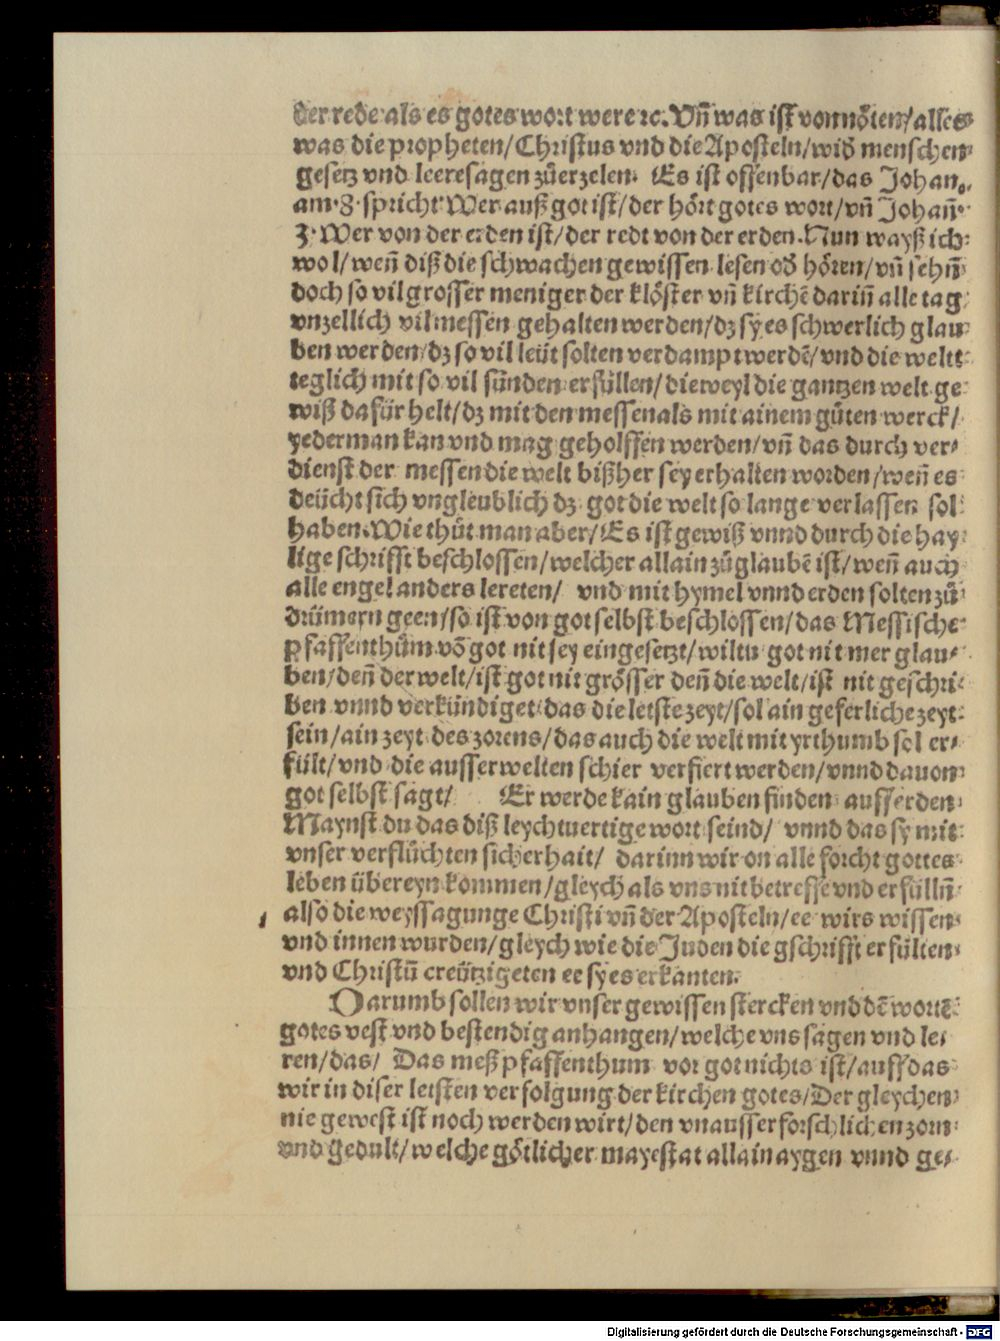 der rede als es gotes wort were ⁊c. Vñ was ist vonnöten/ alles
was die propheten/ Christus vnd die Aposteln/ wid͛ menschen
gesetz vnd leere sagen zůerzelen. Es ist offenbar/ das Johan.
am 8. spricht Wer auß got ist/ der hört gotes wort/ vñ Johañ
3. Wer von der erden ist/ der redt von der erden. Nun wayß ich
wol/ weñ diß die schwachen gewissen lesen od͛ hören/ vñ sehñ
doch so vil grosser meniger der klöster vñ kirchē dariñ alle tag
vnzellich vil messen gehalten werden/ dz sy es schwerlich glau
ben werden/ dz so vil leüt solten verdampt werdē/ vnd die weltt
teglich mit so vil sünden erfüllen/ dieweyl die gantzen welt ge
wiß dafür helt/ dz mit den messen als mit ainem gůten werck/
yederman kan vnd mag geholffen werden/ vñ das durch ver⸗
dienst der messen die welt bißher sey erhalten worden/ weñ es
deücht sich vngleublich dz got die welt so lange verlassen sol
haben. Wie thůt man aber/ Es ist gewiß vnnd durch die hay
lige schrifft beschlossen/ welcher allain zůglaubē ist/ weñ auch
alle engel anders lereten/ vnd mit hymel vnnd erden solten zů
drümern geen/ so ist von got selbst beschlossen/ das Messische
pfaffenthům võ got nit sey eingesetzt/ wiltu got nit mer glau⸗
ben/ deñ der welt/ ist got nit grösser deñ die welt/ ist nit geschri⸗
ben vnnd verkündiget das die letste zeyt/ sol ain geferliche zeyt
sein/ ain zeyt des zorens/ das auch die welt mit yrthumb sol er⸗
fült/ vnd die ausserwelten schier verfiert werden/ vnnd dauon
got selbst sagt/ Er werde kain glauben finden auff erden
Maynst du das diß leychtuertige wort seind/ vnnd das sy mit
vnser verflůchten sicherhait/ darinn wir on alle forcht gottes
leben übereyn kommen/ gleych als vns nit betreffe vnd erfüllñ
also die weyssagunge Christi vñ der Aposteln/ ee wirs wissen
vnd innen wurden/ gleych wie die Juden die gschrifft erfülten
vnd Christū creützigeten ee sy es erkanten.
Darumb sollen wir vnser gewissen stercken vnd dē wortē
gotes vest vnd bestendig anhangen/ welche vns sagen vnd le⸗
ren/ das/ Das meß pfaffenthum vor got nichts ist/ auff das
wir in diser letsten verfolgung der kirchen gotes/ Der gleychen
nie gewest ist noch werden wirt/ den vnausserforschlichen zorn
vnd gedult/ welche götlicher mayestat allain aygen vnnd ge⸗
Digitalisierung gefördert durch die Deutsche Forschungsgemeinschaft - DFG